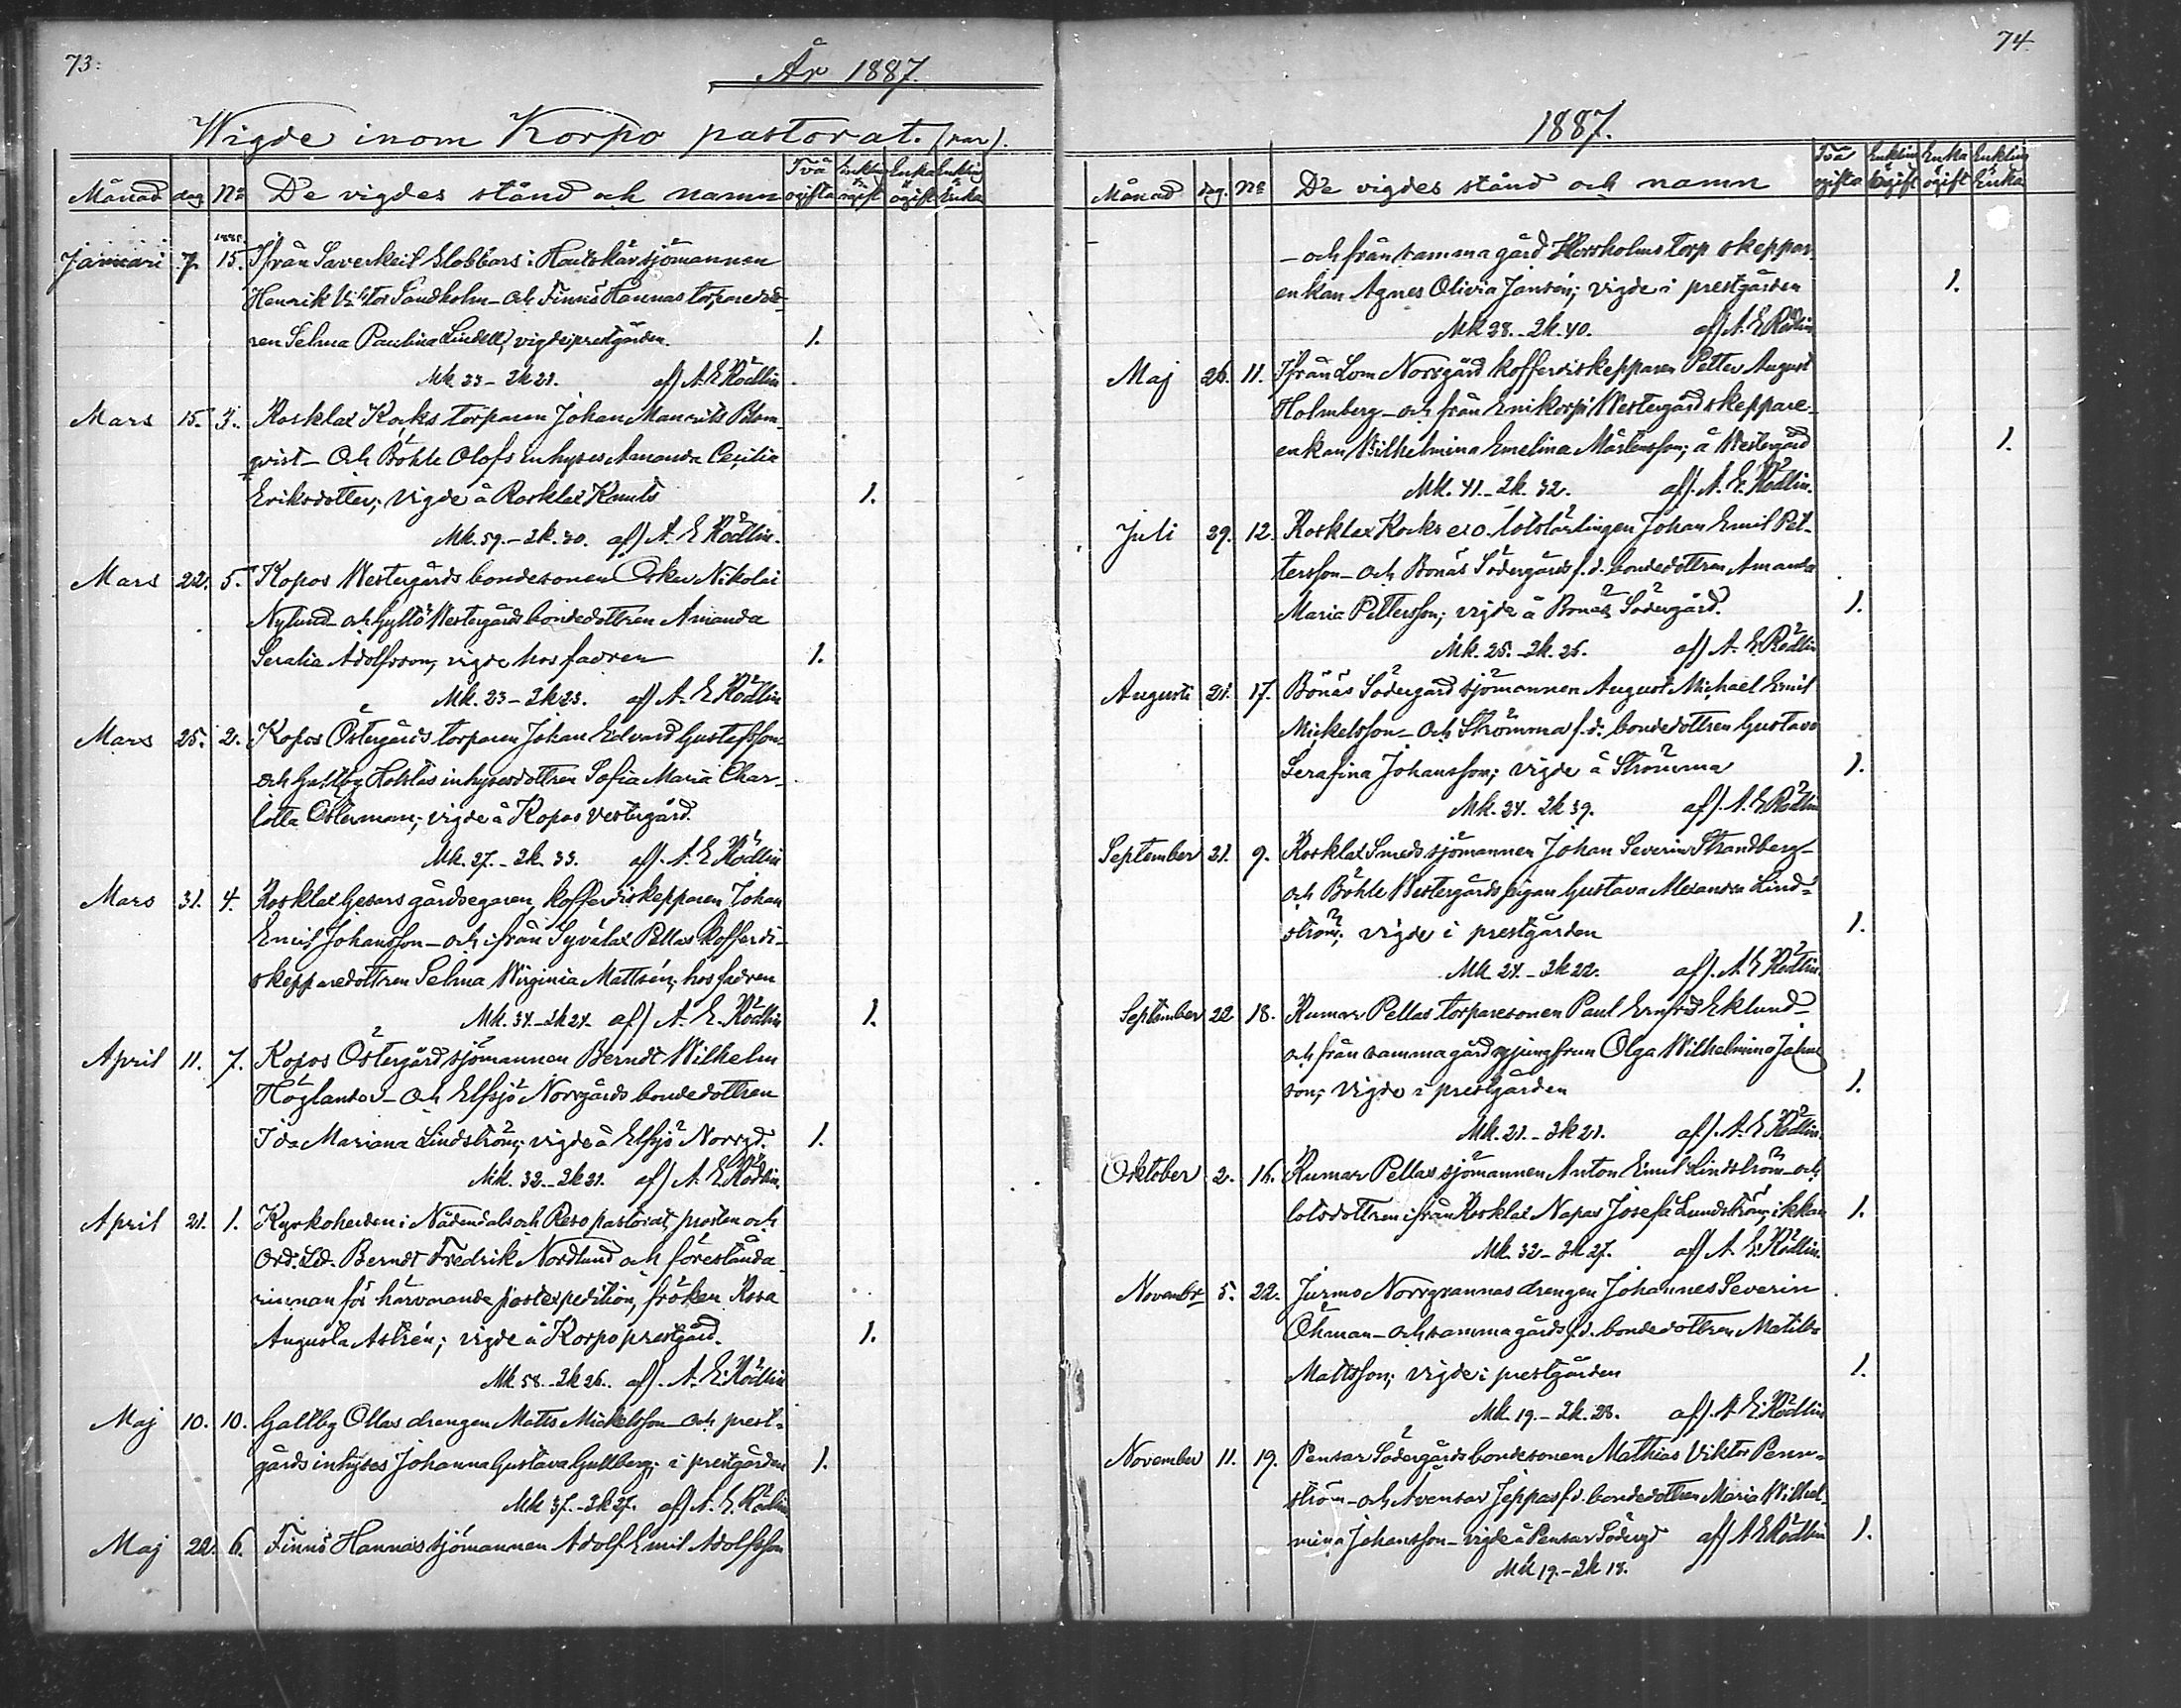 73:
År 1887.
Wigde inom Korpo pastorat. (par).
Månad dag No De vigdes stånd och namn Två ogifta Enkling o. ogift Enka o. ogift Enkling o. Enka
1886.
Januari 7. 15. Ifrån Saverkeit Klobbars i Houtskär sjömannen
Henrik Viktor Sandholm – och Finnö Hannas torparedott-
ren Selma Paulina Lindell, vigde i prestgården. 1.
Mk 23 – Qk 21. af) A. E. Rödlin
Mars 15. 3. Rosklax Kocks torparen Johan Mauritz Blom-
qvist – Och Böhle Olofs inhyses Amanda Cecilia
Eriksdotter; vigde å Rosklax Knuts 1.
Mk. 59. – Qk. 30. af) A. E. Rödlin.
Mars 22. 5. Kopos Westergårds bondesonen Oskar Nikolai
Nylund – och Gyltö Westergårds bondedottren Amanda
Seralia Adolfsson, vigde hos fadren 1.
Mk. 23 – Qk 23. af) A. E. Rödlin
Mars 25. 2. Kopos Östergårds torparen Johan Edvard Gustafsson –
och Galtby inhysesdottren Sofia Maria Char-
lotta Österman; vigde å Kopos Vestergård.
Mk. 27. – Qk. 33. af). A. E. Rödlin
Mars 31. 4. Rosklax Gesars gårdsegaren, kofferdiskepparen Johan
Emil Johansson – och ifrån Syvälax Pellas kofferdi-
skepparedottren Selma Virginia Mattsén; hos fadren
Mk. 34. – Qk 24. af) A. E. Rödlin 1.
April 11. 7. Kopos Östergård sjömannen Berndt Wilhelm
Höglander – och Elfsjö Norrgårds bondedottren
Ida Mariana Lindström; vigde å Elfsjö Norrgd. 1.
Mk. 32. – Qk 21. af) A. E. Rödlin.
April 21. 1. Kyrkoherden i Nådendals och Reso pastorat, prosten och
Ord. Led. Berndt Fredrik Nordlund och förestånda-
rinnan för härvarande postexpedition, fröken Rosa
Augusta Astrén; vigde å Korpo prestgård. 1.
Mk. 58. – Qk 26. af). A. E. Rödlin
Maj 10. 10. Galtby Ollas drengen Matts Mickelsson – och prest-
gårds inhyses Johanna Gustava Gullberg; i prestgården 1.
Mk 37. – Qk 27. af) A. E. Rödlin
Maj 22. 6. Finnö Hannas sjömannen Adolf Emil Adolfsson
74.
1887.
Månad dag. No De vigdes stånd och namn Två ogifta Enkling o. ogift Enka o. ogift Enkling o. Enka
– och från samma gård torp skeppar-
enkan Agnes Olivia Jansén; vigde i prestgården 1.
Mk 28. – Qk. 40. af) A. E. Rödlin
Maj 26. 11. Ifrån Lom Norrgård kofferdiskepparen Petter August
Holmberg – och från Enikorpi Westergård skeppare-
enkan Wilhelmina Emelina Mårtensson; å Westergård 1.
Mk. 41. – Qk. 32. af). A. E. Rödlin.
Juli 29. 12. Rosklax Kocks e. o. lotslärlingen Johan Emil Pet-
tersson – och Bonäs Södergårds f. d. bondedottren Amanda
Maria Pettersson; vigde å Bonäs Södergård. 1.
Mk. 25. – Qk. 26. af) A. E. Rödlin
Augusti 21. 17. Bonäs Södergård sjömannen August Michael Emil
Mickelsson – och Strömma f. d. bondedottren Gustava
Serafina Johansson; vigde å Strömma 1.
Mk. 24. Qk 39. af). A. E. Rödlin
September 21. 9. Rosklax Smeds sjömannen Johan Severin Strandberg –
och Böhle Westergårds pigan Gustava Alexandra Lind-
ström; vigde i prestgården 1.
Mk 24. – Qk 22. af). A. E. Rödlin.
September 22 18. Rumar Pellas torparesonen Paul Ernfrid Eklund –
och från samma gård jungfrun Olga Wilhelmina Johns
son; vigde i prestgården 1.
Mk. 21. – Qk 21. af). A. E. Rödlin.
Oktober 2. 16. Rumar Pellas sjömannen Anton Emil Lindström – och
lotsdottren ifrån Rosklax Napar Josefa Lundström; i kkan 1.
Mk. 32 – Qk 27. af) A. E. Rödlin.
Novembr 5. 22. Jurmo Norrgrannas drengen Johannes Severin
Öhman – och samma gårds f. d. bondedottren Matilda
Mattsson; vigde i prestgården 1.
Mk. 19. – Qk. 28. af). A. E. Rödlin
November 11. 19. Pensar Södergårds bondesonen Mathias Viktor Penn-
ström – och Avensar Jeppas f. d. bondedottren Maria Wilhel-
mina Johansson – vigde å Pensar Södergd af) A. E. Rödlin 1.
Mk 19. – Qk 18.